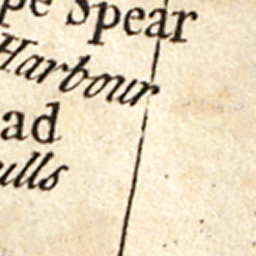 pe Spear
Harbour
ad
ulls